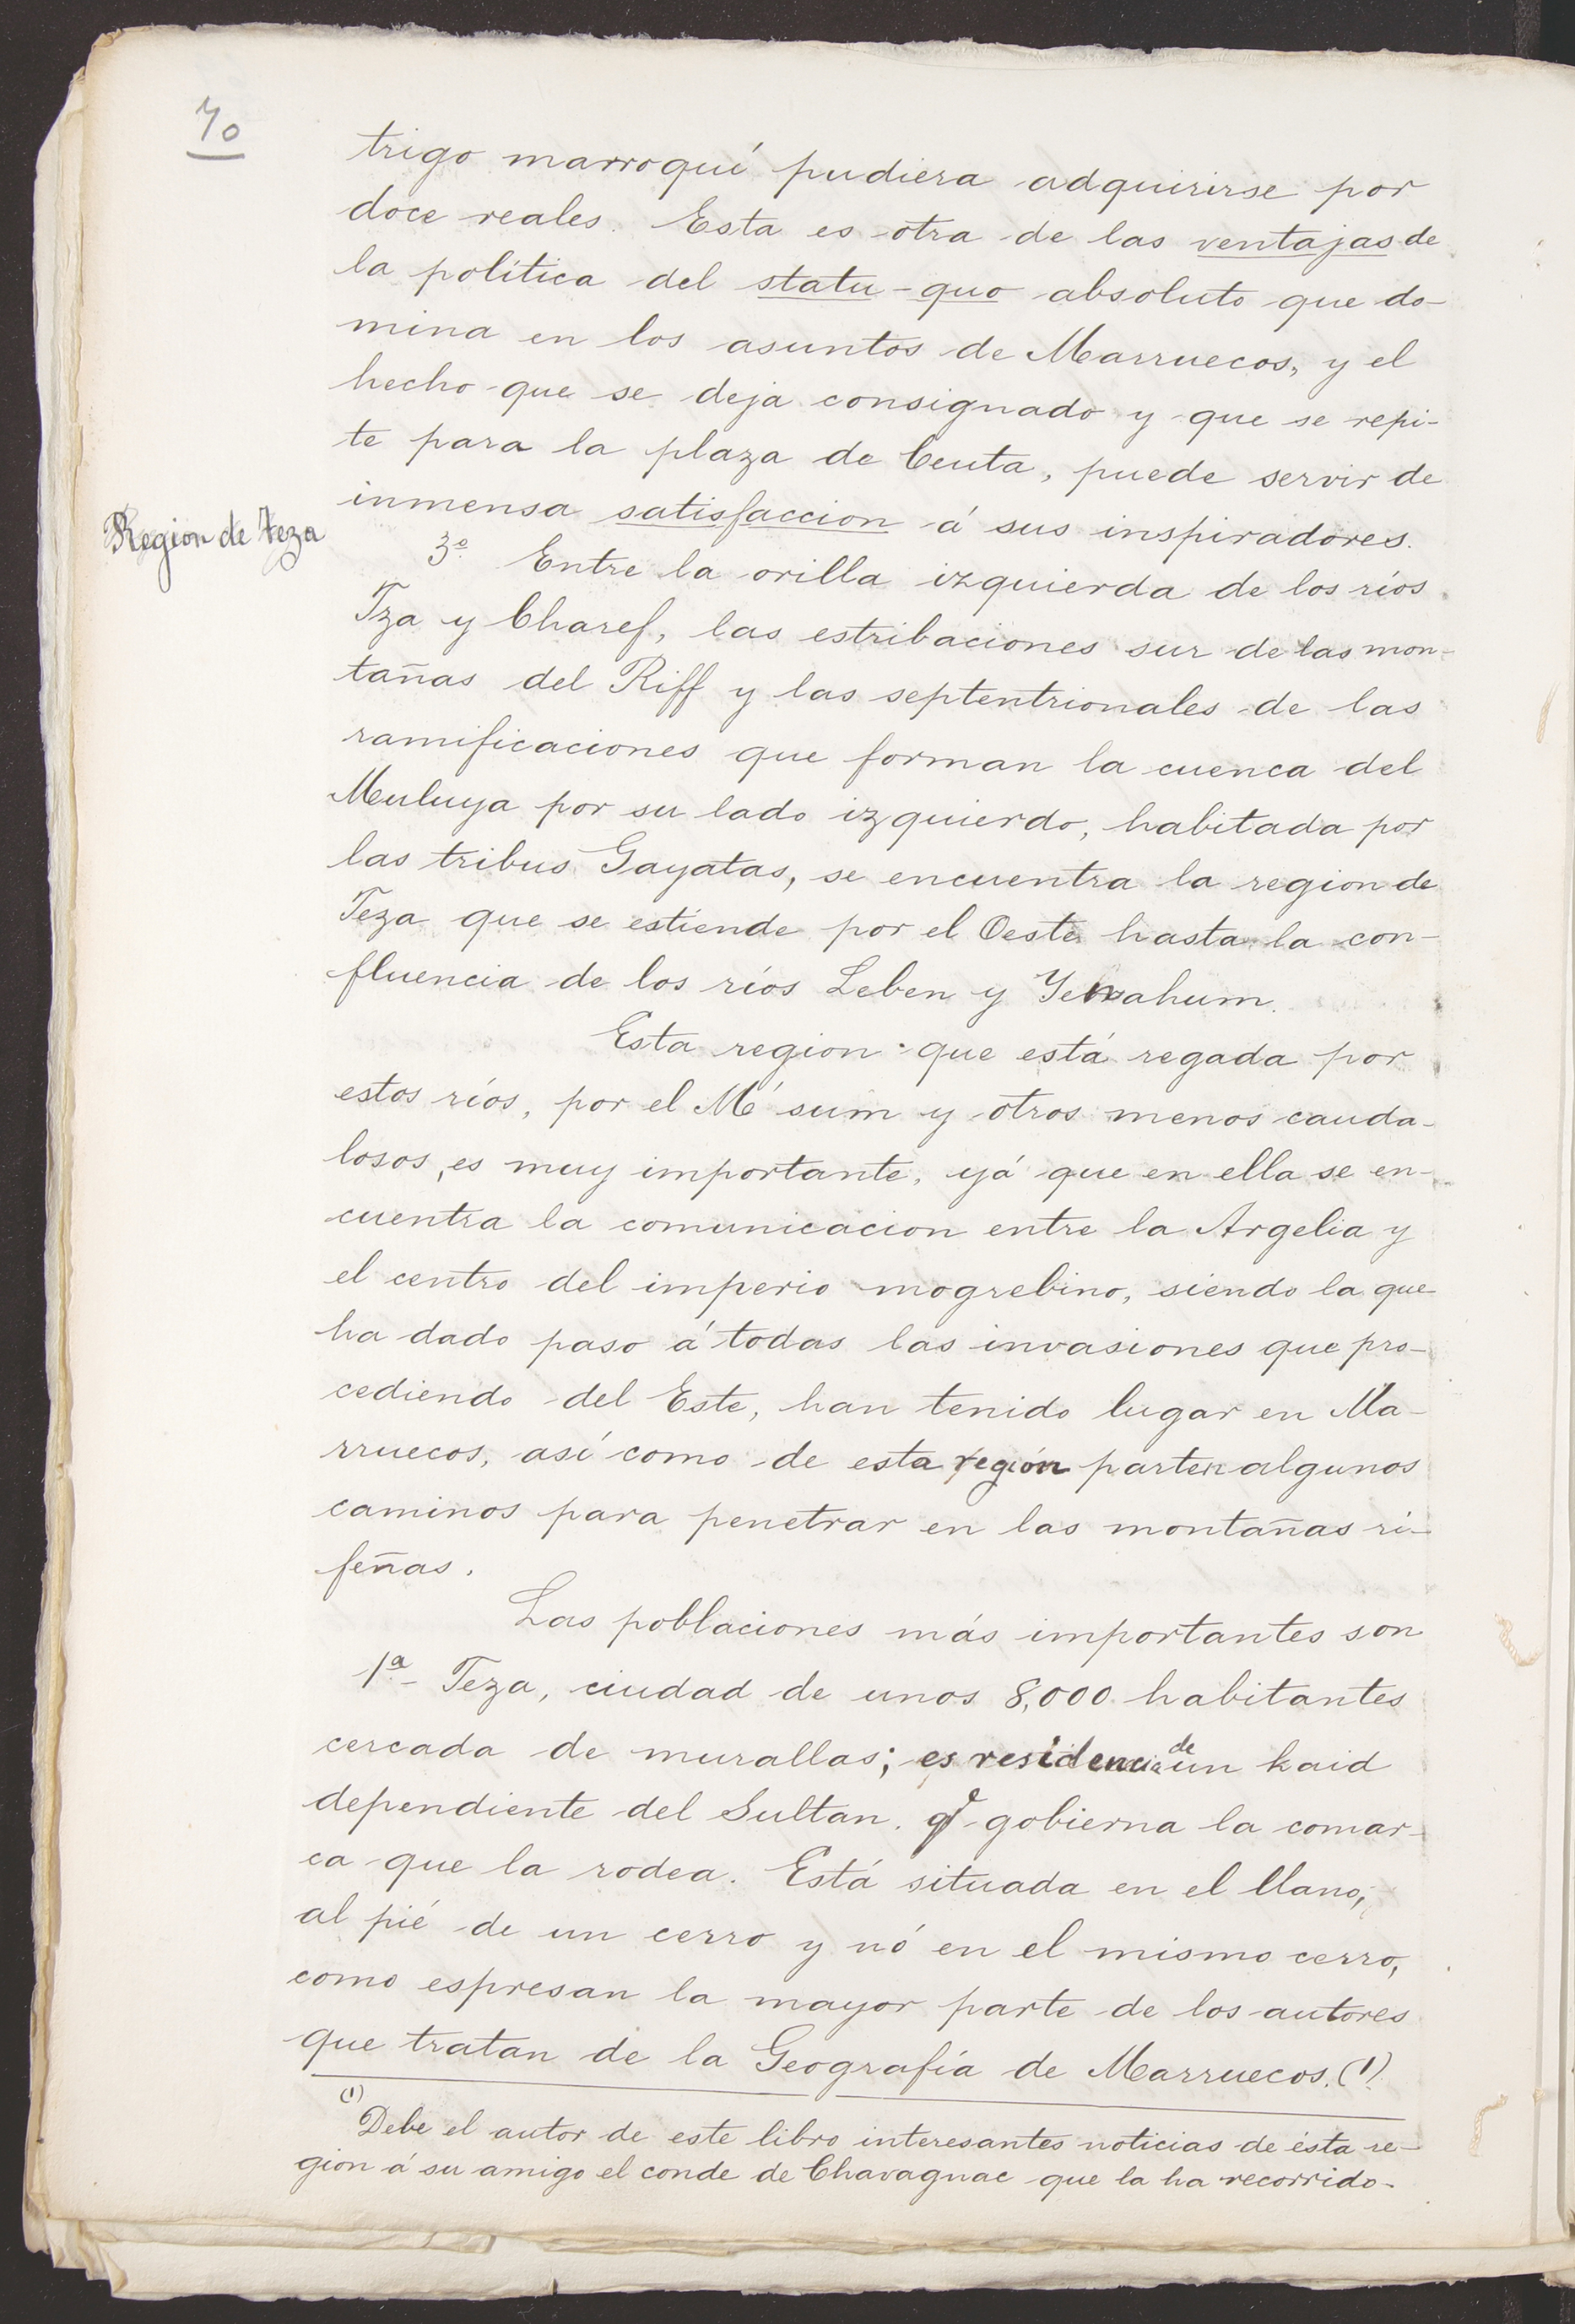 70
trigo marroquí pudiera adquirirse por
doce reales. Esta es otra de las ventajas de
la política del statu-quo absoluto que do-
mina en los asuntos de Marruecos, y el
hecho que se deja consignado y que se repi-
te para la plaza de Ceuta, puede servir de
inmensa satisfaccion á sus inspiradores.
Region de Teza
3º Entre la orilla izquierda de los ríos
Tza y Charef, las estribaciones sur de las mon-
tañas del Riff y las septentrionales de las
ramificaciones que forman la cuenca del
Muluya por su lado izquierdo, habitada por
las tribus Gayatas, se encuentra la region de
Teza que se estiende por el Oeste hasta la con-
fluencia de los ríos Leben y Yenahum.
Esta region que está regada por
estos ríos, por el M'sum y otros menos cauda-
losos, es muy importante, yá que en ella se en-
cuentra la comunicacion entre la Argelia y
el centro del imperio mogrebino, siendo la que
ha dado paso á todas las invasiones que pro-
cediendo del Este, han tenido lugar en Ma-
rruecos, así como de esta región parten algunos
caminos para penetrar en las montañas ri-
feñas.
Las poblaciones más importantes son
1ª- Teza, ciudad de unos 8,000 habitantes
cercada de murallas; es residencia de un kaid
dependiente del Sultan. qe gobierna la comar-
ca que la rodea. Está situada en el llano,
al pié de un cerro y nó en el mismo cerro,
como espresan la mayor parte de los autores
que tratan de la Geografía de Marruecos. (1)
(1) Debe el autor de este libro interesantes noticias de ésta re-
gion á su amigo el conde de Chavagnac que la ha recorrido.